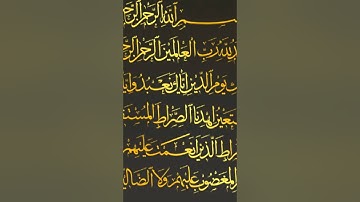 سم الله الرحمن الرحـ
ـد لله رب العالمين الرحمن الرحـ
ـك يوم الدين إياك نعبد وإيا
ـتعين اهدنا الصراط المستقـ
ـراط الذين أنعمت عليهم
المغضوب عليهم ولا الضالـ